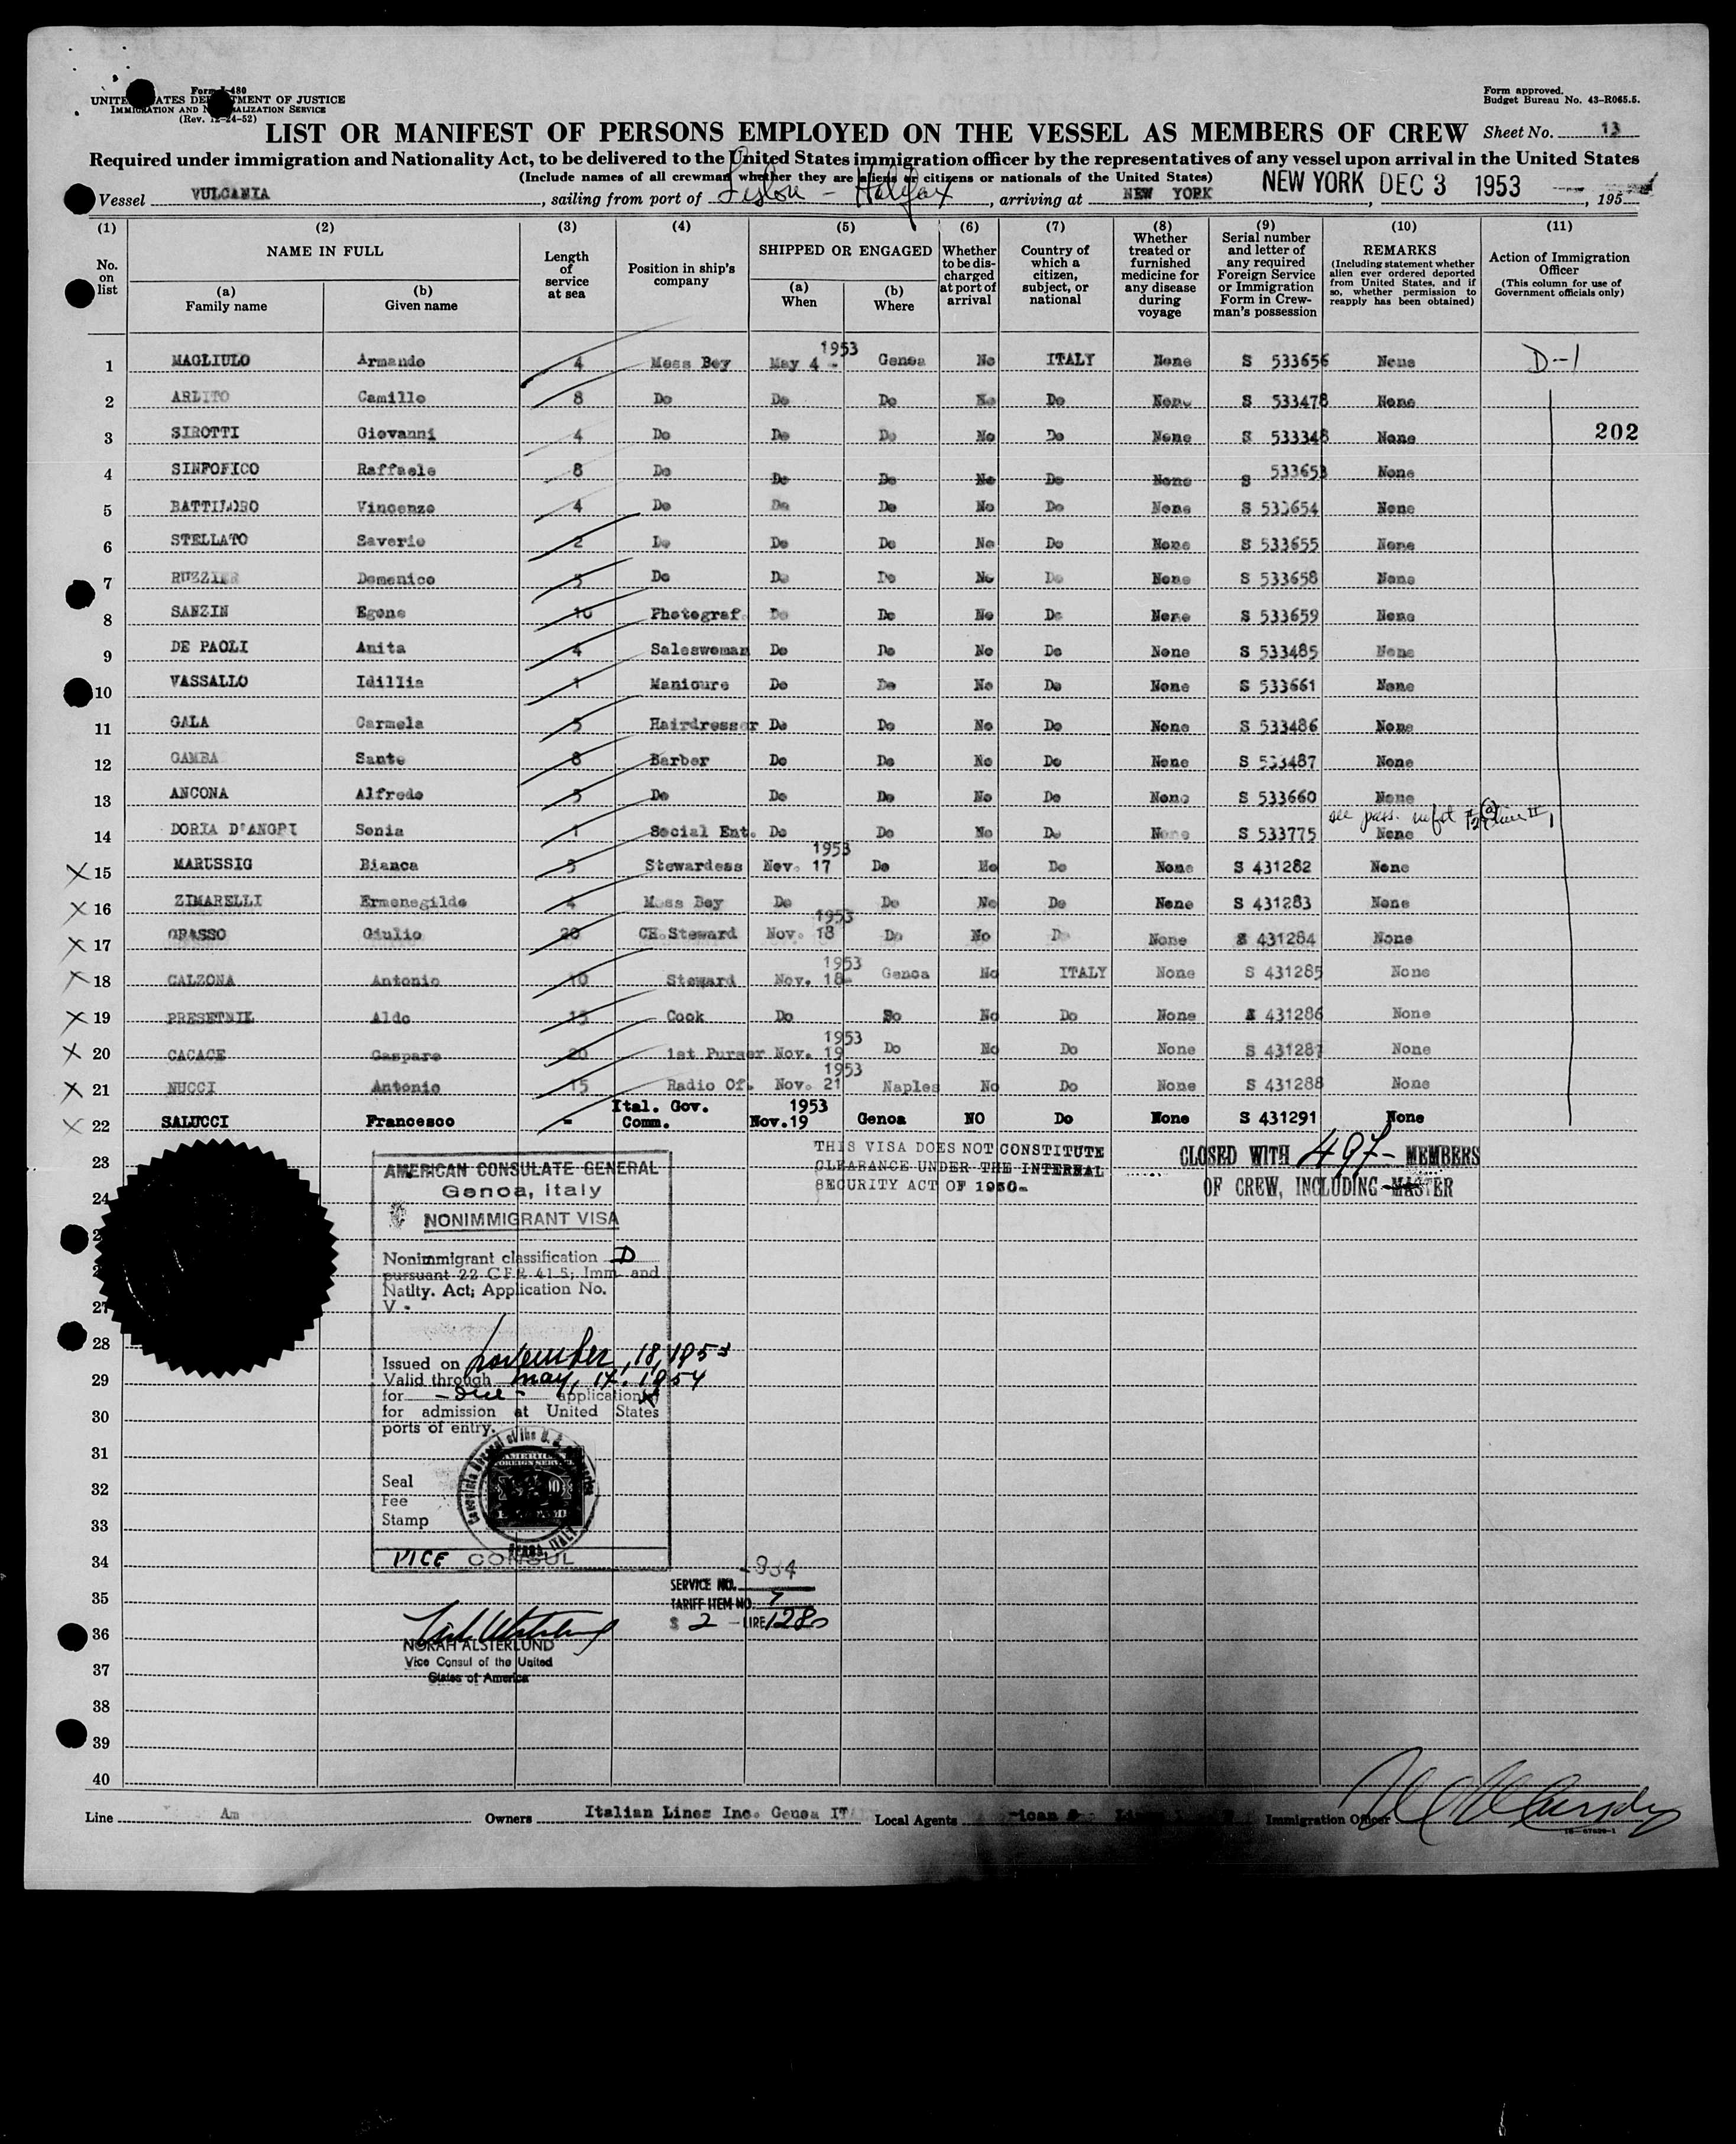 Form I-480
UNITED STATES DEPARTMENT OF JUSTICE
IMMIGRATION AND NATURALIZATION SERVICE
(Rev. 12-24-52)
Form approved.
Budget Bureau No. 43-R065.5.
LIST OR MANIFEST OF PERSONS EMPLOYED ON THE VESSEL AS MEMBERS OF CREW Sheet No. 13
Required under immigration and Nationality Act, to be delivered to the United States immigration officer by the representatives of any vessel upon arrival in the United States
(Include names of all crewman whether they are aliens or citizens or nationals of the United States)
Vessel VULCANIA, sailing from port of Lisbon - Halifax, arriving at NEW YORK, NEW YORK DEC 3 1953, 195
(1) No. on list
(2) NAME IN FULL
(a) Family name
(b) Given name
(3) Length of service at sea
(4) Position in ship's company
(5) SHIPPED OR ENGAGED
(a) When
(b) Where
(6) Whether to be discharged at port of arrival
(7) Country of which a citizen, subject, or national
(8) Whether treated or furnished medicine for any disease during voyage
(9) Serial number and letter of any required Foreign Service or Immigration Form in Crewman's possession
(10) REMARKS (Including statement whether alien ever ordered deported from United States, and if so, whether permission to reapply has been obtained)
(11) Action of Immigration Officer (This column for use of Government officials only)
1 MAGLIULO Armando 4 Mess Boy May 4 - 1953 Genoa No ITALY None S 533656 None D-1
2 ARLITO Camillo 8 Do Do Do No Do None S 533478 None
3 SIROTTI Giovanni 4 Do Do Do No Do None S 533348 None 202
4 SINFOFICO Raffaele 8 Do Do Do No Do None S 533653 None
5 BATTILORO Vincenzo 4 Do Do Do No Do None S 533654 None
6 STELLATO Saverio 2 Do Do Do No Do None S 533655 None
7 RUZZIER Domenico 5 Do Do Do No Do None S 533658 None
8 SANZIN Egone 10 Photograf. Do Do No Do None S 533659 None
9 DE PAOLI Anita 4 Saleswoman Do Do No Do None S 533485 None
10 VASSALLO Idillia 1 Manicure Do Do No Do None S 533661 None
11 GALA Carmela 5 Hairdresser Do Do No Do None S 533486 None
12 GAMBA Sante 8 Barber Do Do No Do None S 533487 None
13 ANCONA Alfredo 5 Do Do Do No Do None S 533660 None
see pass.
14 DORIA D'ANGRI Sonia 1 Social Ent. Do Do No Do None S 533775 None
X 15 MARUSSIG Bianca 5 Stewardess Nov. 17 1953 Do No Do None S 431282 None
X 16 ZIMARELLI Ermenegildo 4 Mess Boy Do Do No Do None S 431283 None
X 17 GRASSO Giulio 20 CH.Steward Nov. 18 1953 Do No Do None S 431284 None
X 18 CALZONA Antonio 10 Steward Nov. 18- 1953 Genoa No ITALY None S 431285 None
X 19 PRESETNIK Aldo 15 Cook Do So No Do None S 431286 None
X 20 CACACE Gaspare 20 1st Purser Nov. 19 1953 Do No Do None S 431287 None
X 21 NUCCI Antonio 15 Radio Of. Nov. 21 1953 Naples No Do None S 431288 None
X 22 SALUCCI Francesco - Ital. Gov. Comm. Nov.19 1953 Genoa NO Do None S 431291 None
23
24
27
28
29
30
31
32
33
34
35
36
37
38
39
40
THIS VISA DOES NOT CONSTITUTE
CLEARANCE UNDER THE INTERNAL
SECURITY ACT OF 1950-
CLOSED WITH 497- MEMBERS
OF CREW, INCLUDING MASTER
AMERICAN CONSULATE GENERAL
Genoa, Italy
NONIMMIGRANT VISA
Nonimmigrant classification D
pursuant 22 CFR 41.5; Imm. and
Natlty. Act; Application No.
V -
Issued on november, 18, 1953
Valid through may, 17, 1954
for - One - application
for admission at United States
ports of entry.
Seal
Fee
Stamp
VICE CONSUL
SERVICE NO. 834
TARIFF ITEM NO. 7
$ 2 - LIRE 1280
NORAH ALSTERLUND
Vice Consul of the United
States of America
Line Am Owners Italian Lines Inc. Genoa IT Local Agents Immigration Officer
16-67626-1